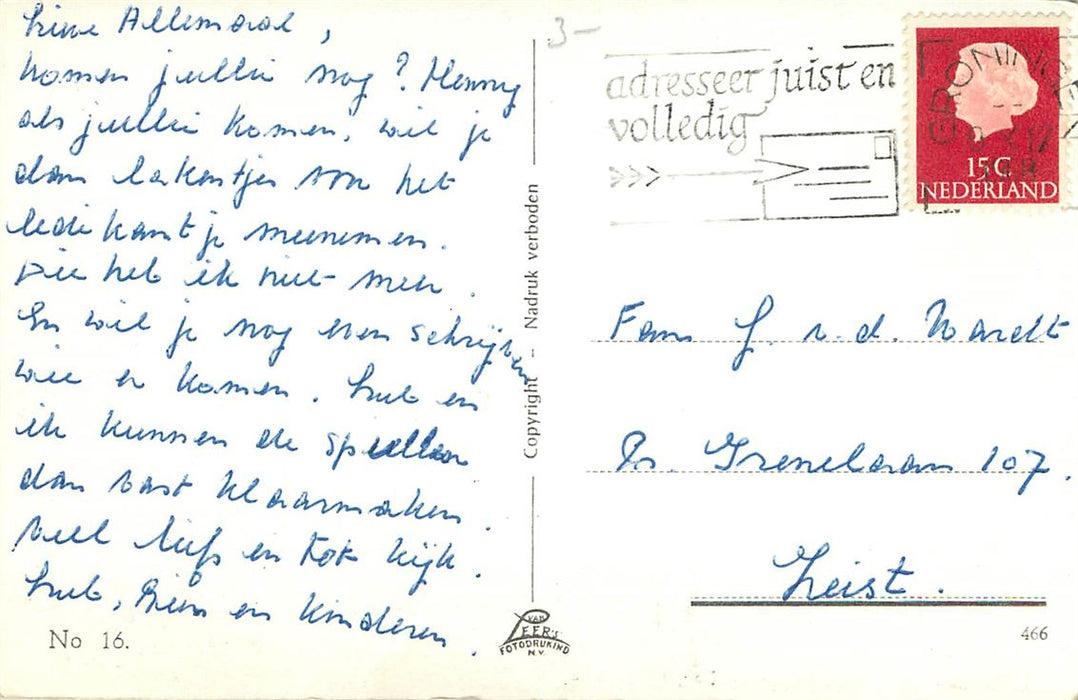 Lieve Allemaal,
komen jullie nog? Henny
als jullie komen, wil je
dan lakentjes van het
ledikantje meenemen.
Die heb ik niet meer.
En wil je nog even schrijven
wie er komen. Huib en
ik kunnen de spullen
dan vast klaarmaken.
Veel liefs en tot kijk.
Huib, Rien en kinderen.
No 16.
Copyright - Nadruk verboden
VAN
LEER'S
FOTODRUKIND
N.V.
3-
adresseer juist en
volledig
GRONINGEN
15 C
NEDERLAND
Fam J. v.d. Wardt
Pr. Irenelaan 107.
Zeist.
466